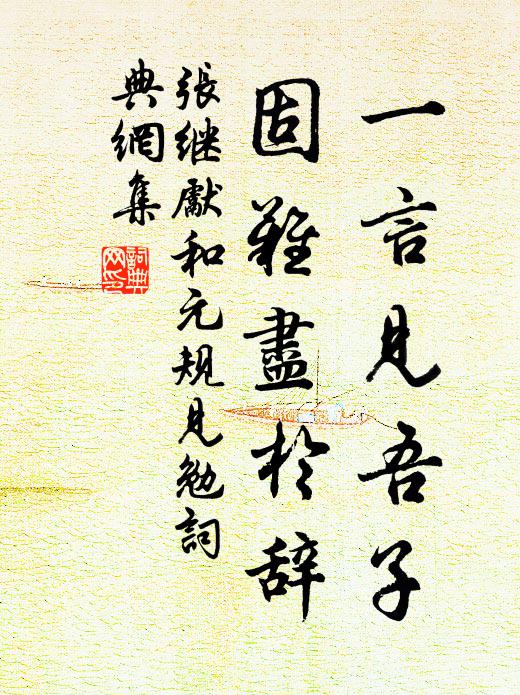 一言見吾子
固難盡於辞
張继獻和元規見勉詞
典網集
詞典
网印